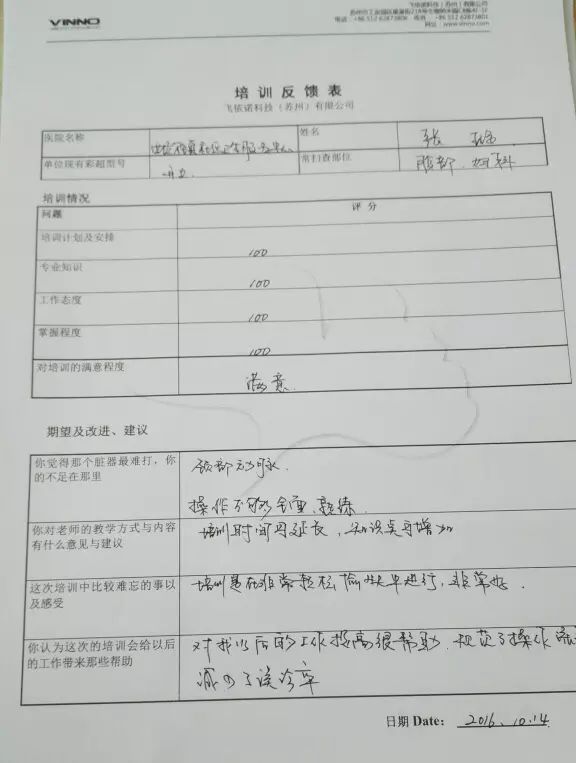 VINNO
飞依诺科技（苏州）有限公司
www.vinno.com
培训反馈表
飞依诺科技（苏州）有限公司
医院名称
姓名 张
单位现有彩超型号
常扫查部位 腹部、妇科
培训情况
问题 评分
培训计划及安排 100
专业知识 100
工作态度 100
掌握程度 100
对培训的满意程度 满意
期望及改进、建议
你觉得那个脏器最难打，你
的不足在那里
颈部动脉.
操作不够全面、熟练
你对老师的教学方式与内容
有什么意见与建议
培训时间再延长，知识点再增加
这次培训中比较难忘的事以
及感受
培训是在非常轻松愉快中进行，非常好.
你认为这次的培训会给以后
的工作带来那些帮助
对我以后的工作提高很帮助，规范了操作
减少了误诊率
日期 Date: 2016.10.14